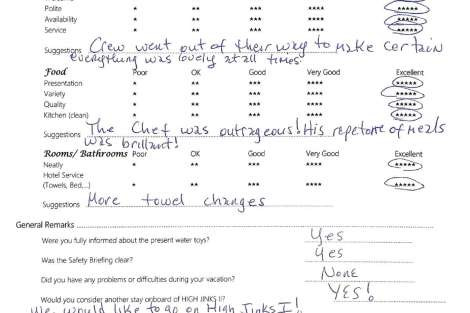 Polite * ** *** **** *****
Availability * ** *** **** *****
Service * ** *** **** *****
Suggestions Crew went out of their way to make certain
everything was lovely at all times.
Food Poor OK Good Very Good Excellent
Presentation * ** *** **** *****
Variety * ** *** **** *****
Quality * ** *** **** *****
Kitchen (clean) * ** *** **** *****
Suggestions The Chef was outrageous! His repetore of meals
was brilliant!
Rooms/ Bathrooms Poor OK Good Very Good Excellent
Neatly * ** *** **** *****
Hotel Service
(Towels, Bed...) * ** *** **** *****
Suggestions More towel changes
General Remarks
Were you fully informed about the present water toys? Yes
Was the Safety Briefing clear? Yes
Did you have any problems or difficulties during your vacation? None
Would you consider another stay onboard of HIGH JINKS II? YES!
We would like to go on High Jinks I!